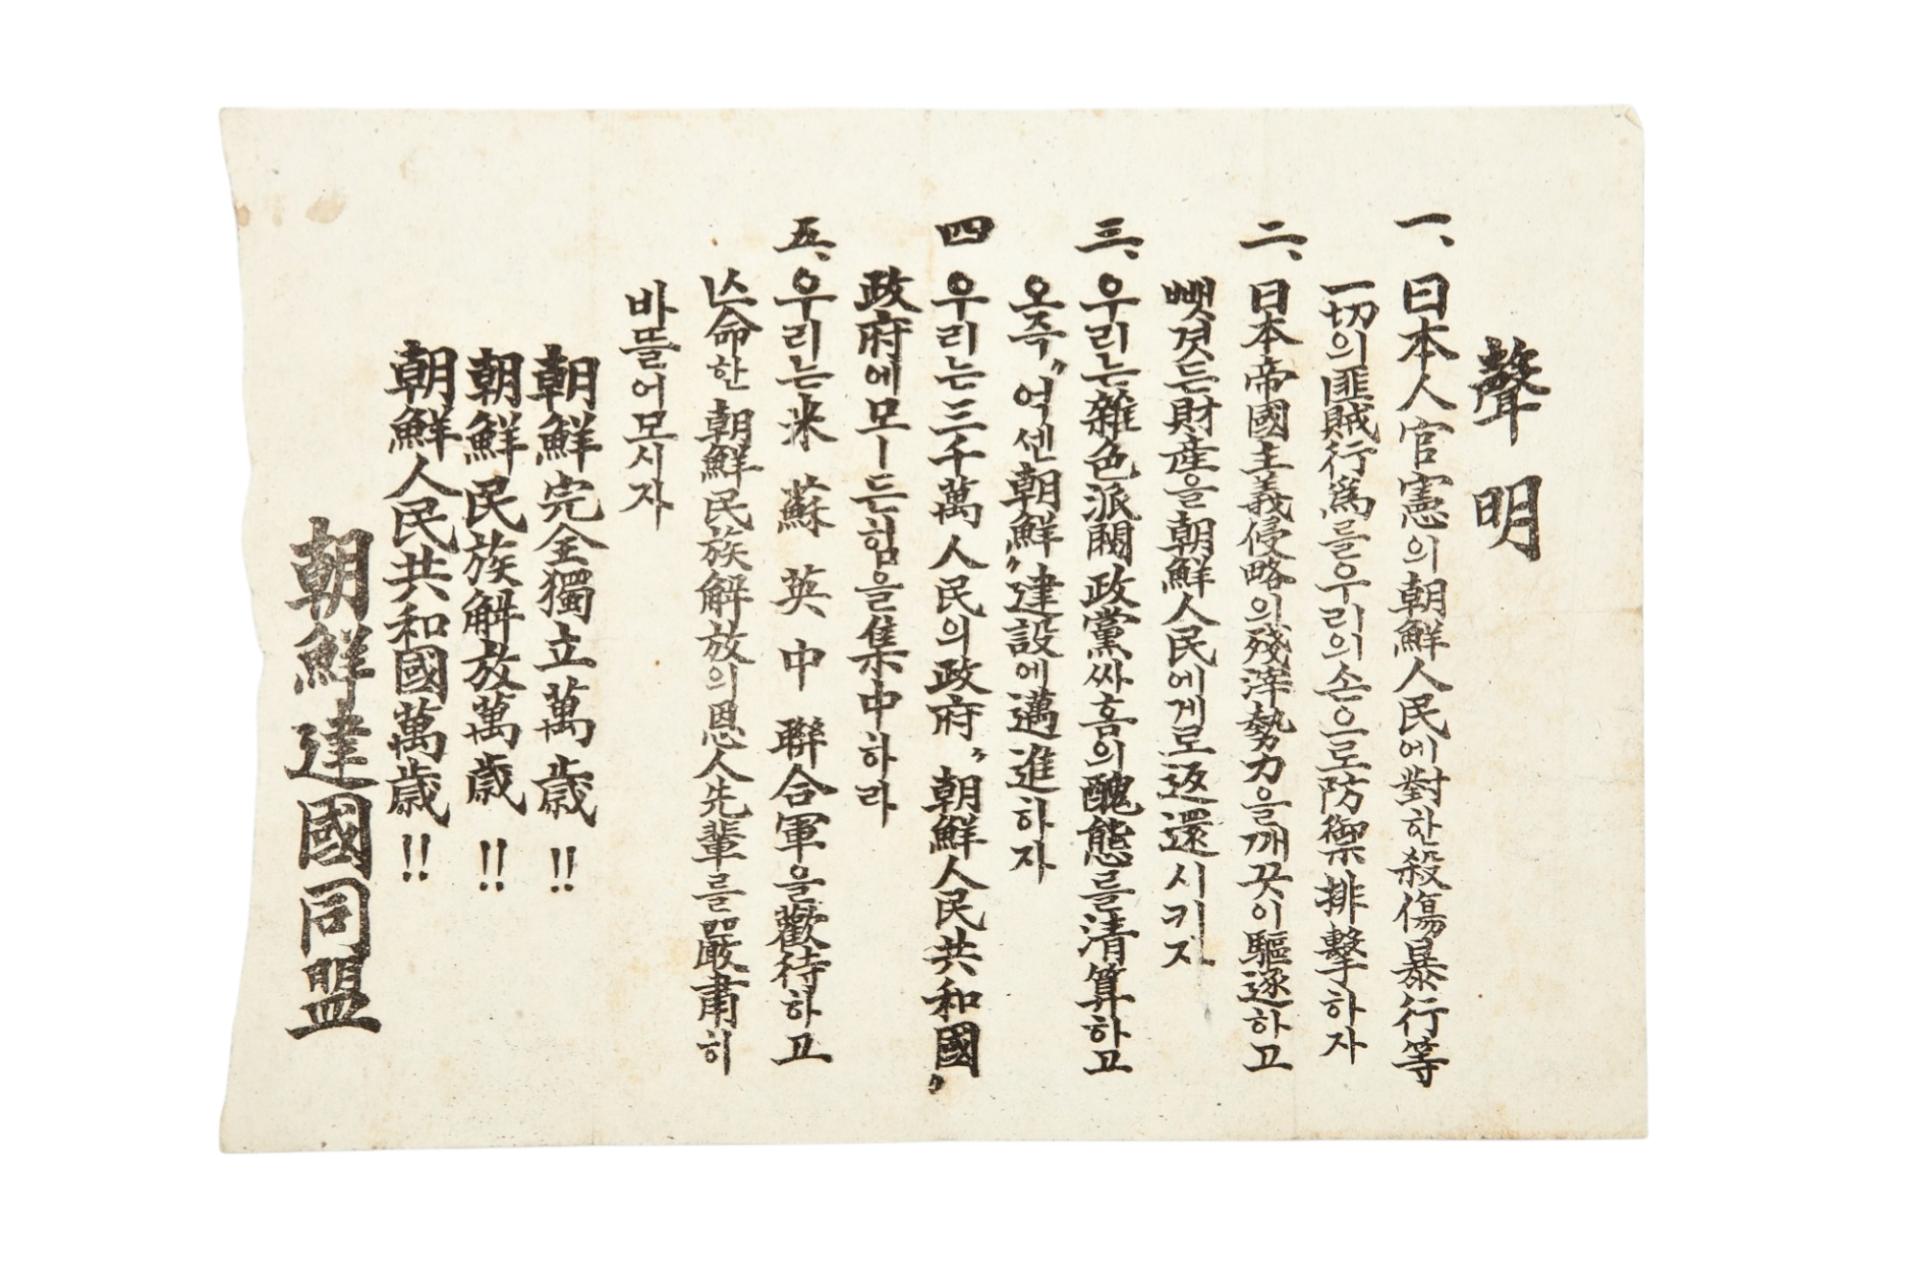 聲明
一、日本人官憲의朝鮮人民에對한殺傷暴行等
一切의匪賊行爲를우리의손으로防禦排擊하자
二、日本帝國主義侵略의殘滓勢力을깨끗이驅逐하고
뺏겻든財産을朝鮮人民에게로返還시키자
三、우리는雜色派閥政黨싸홈의醜態를清算하고
오즉〃억센朝鮮〃建設에邁進하자
四 우리는三千萬人民의政府〃朝鮮人民共和國〃
政府에모ー든힘을集中하라
五、우리는米 蘇 英 中 聯合軍을歡待하고
亡命한朝鮮民族解放의恩人先輩를嚴肅히
바뜰어모시자
朝鮮完全獨立萬歲!!
朝鮮民族解放萬歲!!
朝鮮人民共和國萬歲!!
朝鮮建國同盟